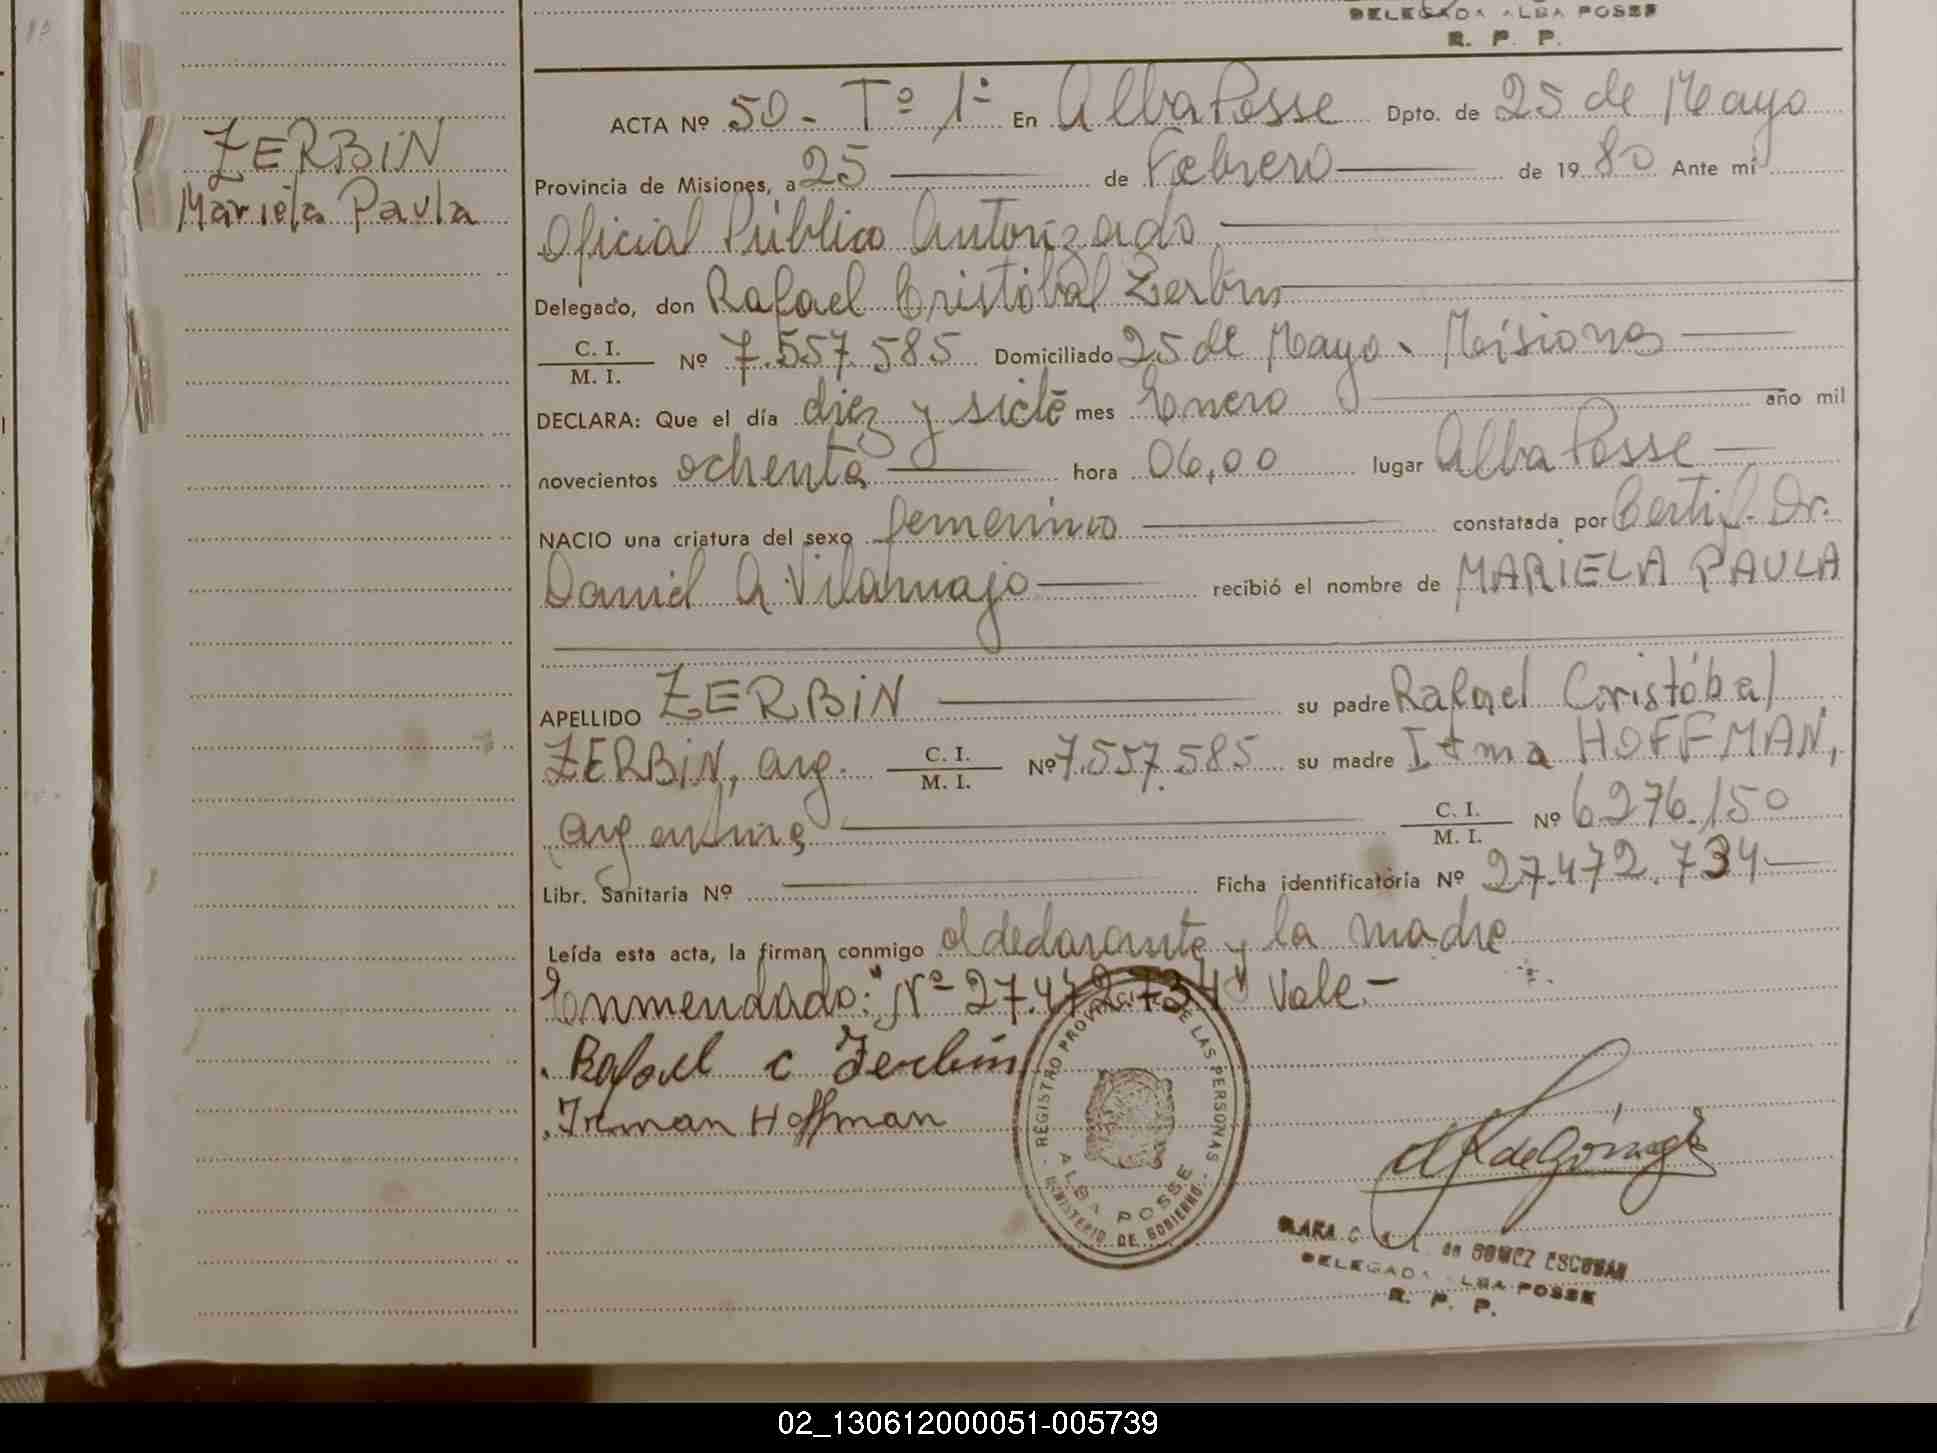 DELEGADA ALBA POSSE
R. P. P.
ZERBIN
Mariela Paula
ACTA Nº 50 - Tº 1º En Alba Posse Dpto. de 25 de Mayo
Provincia de Misiones, a 25 de Febrero de 1980 Ante mi
Oficial Público Autorizado
Delegado, don Rafael Cristóbal Zerbin
C. I.
M. I. Nº 7.557.585 Domiciliado 25 de Mayo - Misiones
DECLARA: Que el día diez y siete mes Enero año mil
novecientos ochenta hora 06,00 lugar Alba Posse
NACIO una criatura del sexo femenino constatada por Certif. Dr.
Daniel A Vilamajo recibió el nombre de MARIELA PAULA
APELLIDO ZERBIN su padre Rafael Cristóbal
ZERBIN, arg. C. I. M. I. Nº 7.557.585 su madre Irma HOFFMAN,
argentina C. I. M. I. Nº 6.276.150
Libr. Sanitaria Nº Ficha identificatoria Nº 27.472.734
Leída esta acta, la firman conmigo el declarante y la madre
Enmendado: "Nº 27.472.734" Vale.-
Rafael c Zerbin
Irman Hoffman
REGISTRO PROVINCIAL DE LAS PERSONAS
ALBA POSSE
MINISTERIO DE GOBIERNO
CLARA C. de GOMEZ ESCOBAR
DELEGADA ALBA POSSE
R. P. P.
02_130612000051-005739